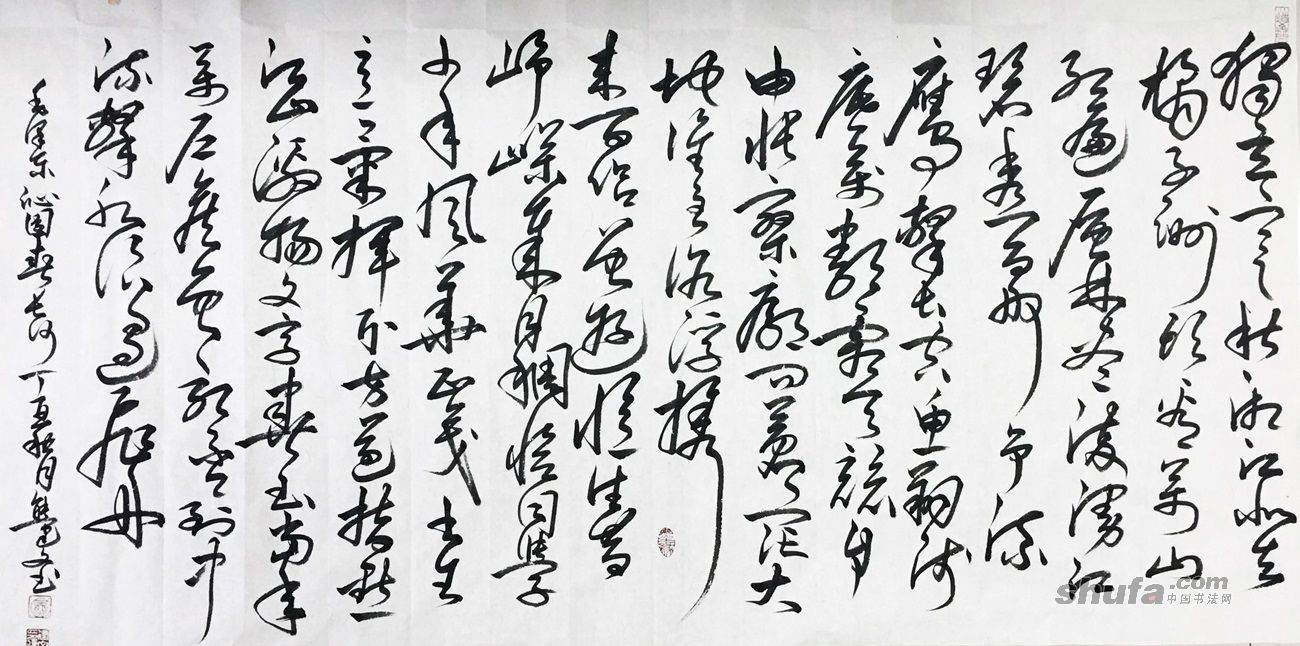 獨立寒秋湘江北去
橘子洲頭看萬山
紅遍層林盡染漫江
碧透百舸爭流
鷹擊長空魚翔淺
底萬類霜天競自
由悵寥廓問蒼茫大
地誰主沉浮攜
來百侣曾遊憶往昔
崢嶸歲月稠恰同學
少年風華正茂書生
意氣揮斥方遒指點
江山激揚文字糞土當年
萬户侯曾記否到中
流擊水浪遏飛舟
毛澤東沁園春長沙丁酉秋月
shufa.com
中国书法网